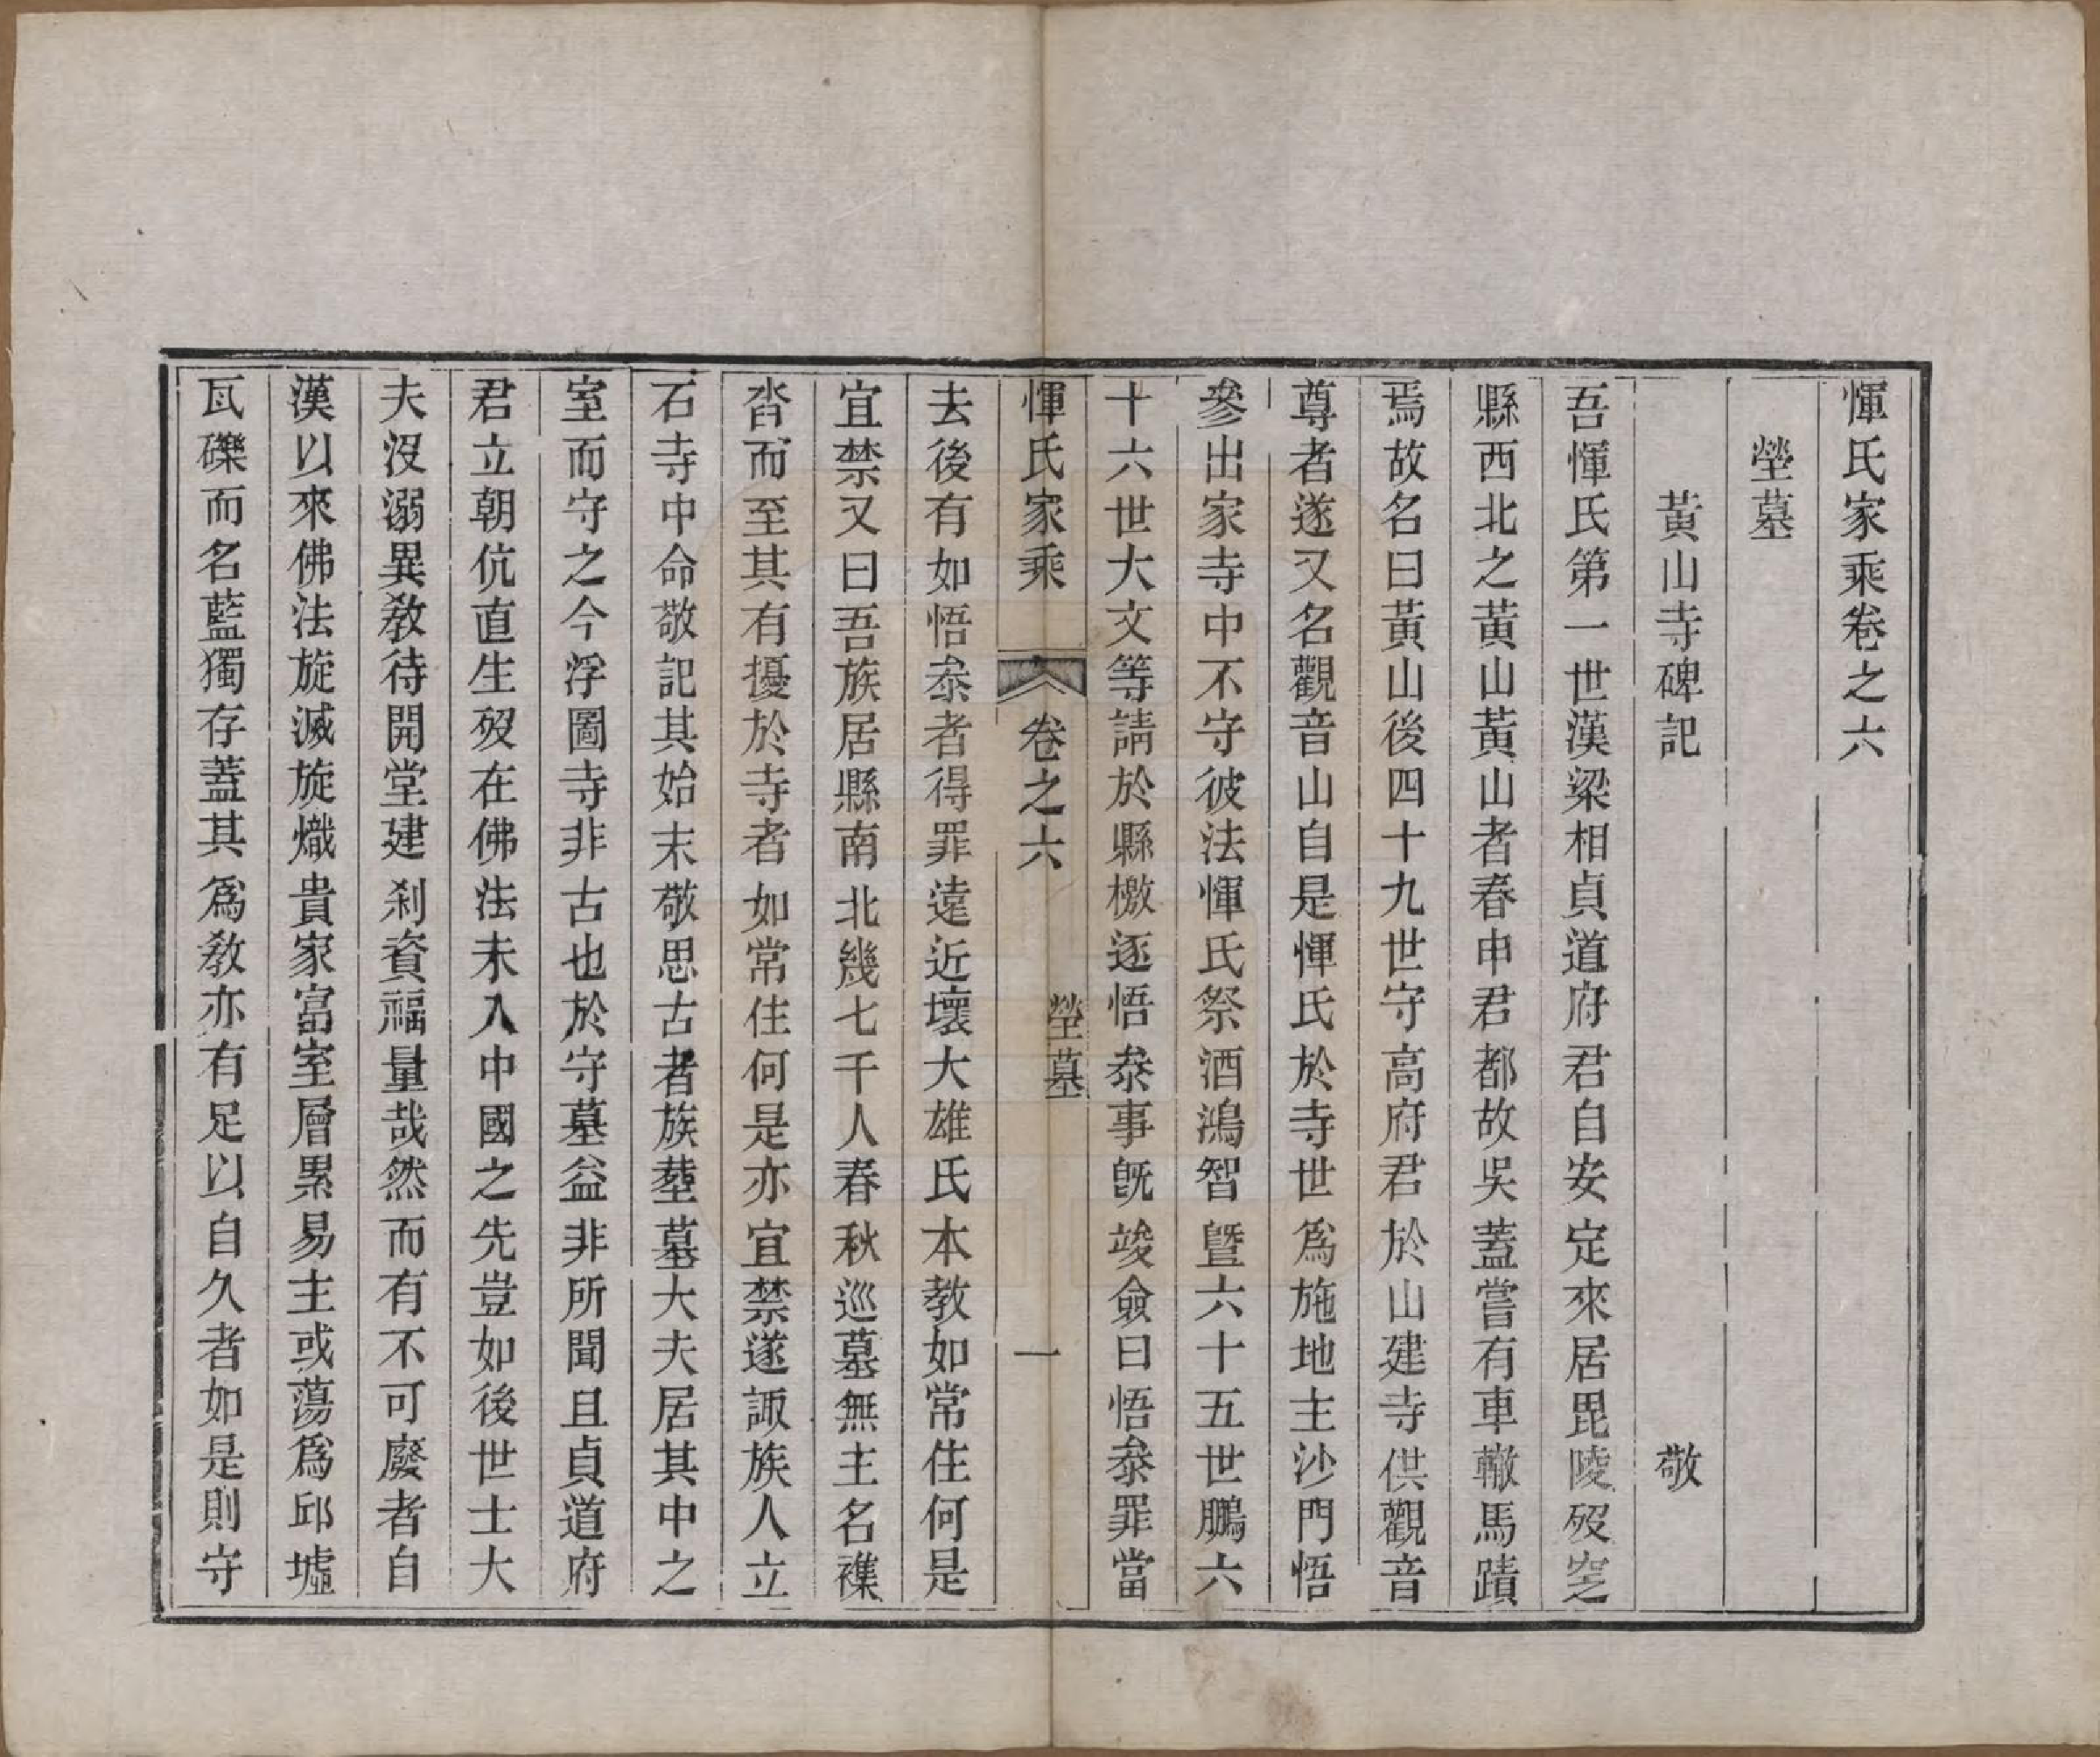 惲氏家乘卷之六
塋墓
黃山寺碑記　敬
吾惲氏第一世漢梁相貞道府君自安定來居毘陵歿窆
縣西北之黃山黃山者春申君都故吳蓋嘗有車轍馬蹟
焉故名曰黃山後四十九世守高府君於山建寺供觀音
尊者遂又名觀音山自是惲氏於寺世爲施地主沙門悟
參出家寺中不守彼法惲氏祭酒鴻智暨六十五世鵬六
十六世大文等請於縣檄逐悟叅事旣竣僉曰悟叅罪當
惲氏家乘　卷之六　塋墓　一
去後有如悟叅者得罪遠近壞大雄氏本教如常住何是
宜禁又曰吾族居縣南北幾七千人春秋巡墓無主名襍
沓而至其有擾於寺者如常住何是亦宜禁遂諏族人立
石寺中命敬記其始末敬思古者族塟墓大夫居其中之
室而守之今浮圖寺非古也於守墓益非所聞且貞道府
君立朝伉直生歿在佛法未入中國之先豈如後世士大
夫沒溺異教待開堂建刹資福量哉然而有不可廢者自
漢以來佛法旋滅旋熾貴家富室層累易主或蕩爲邱墟
瓦礫而名藍獨存蓋其爲教亦有足以自久者如是則守